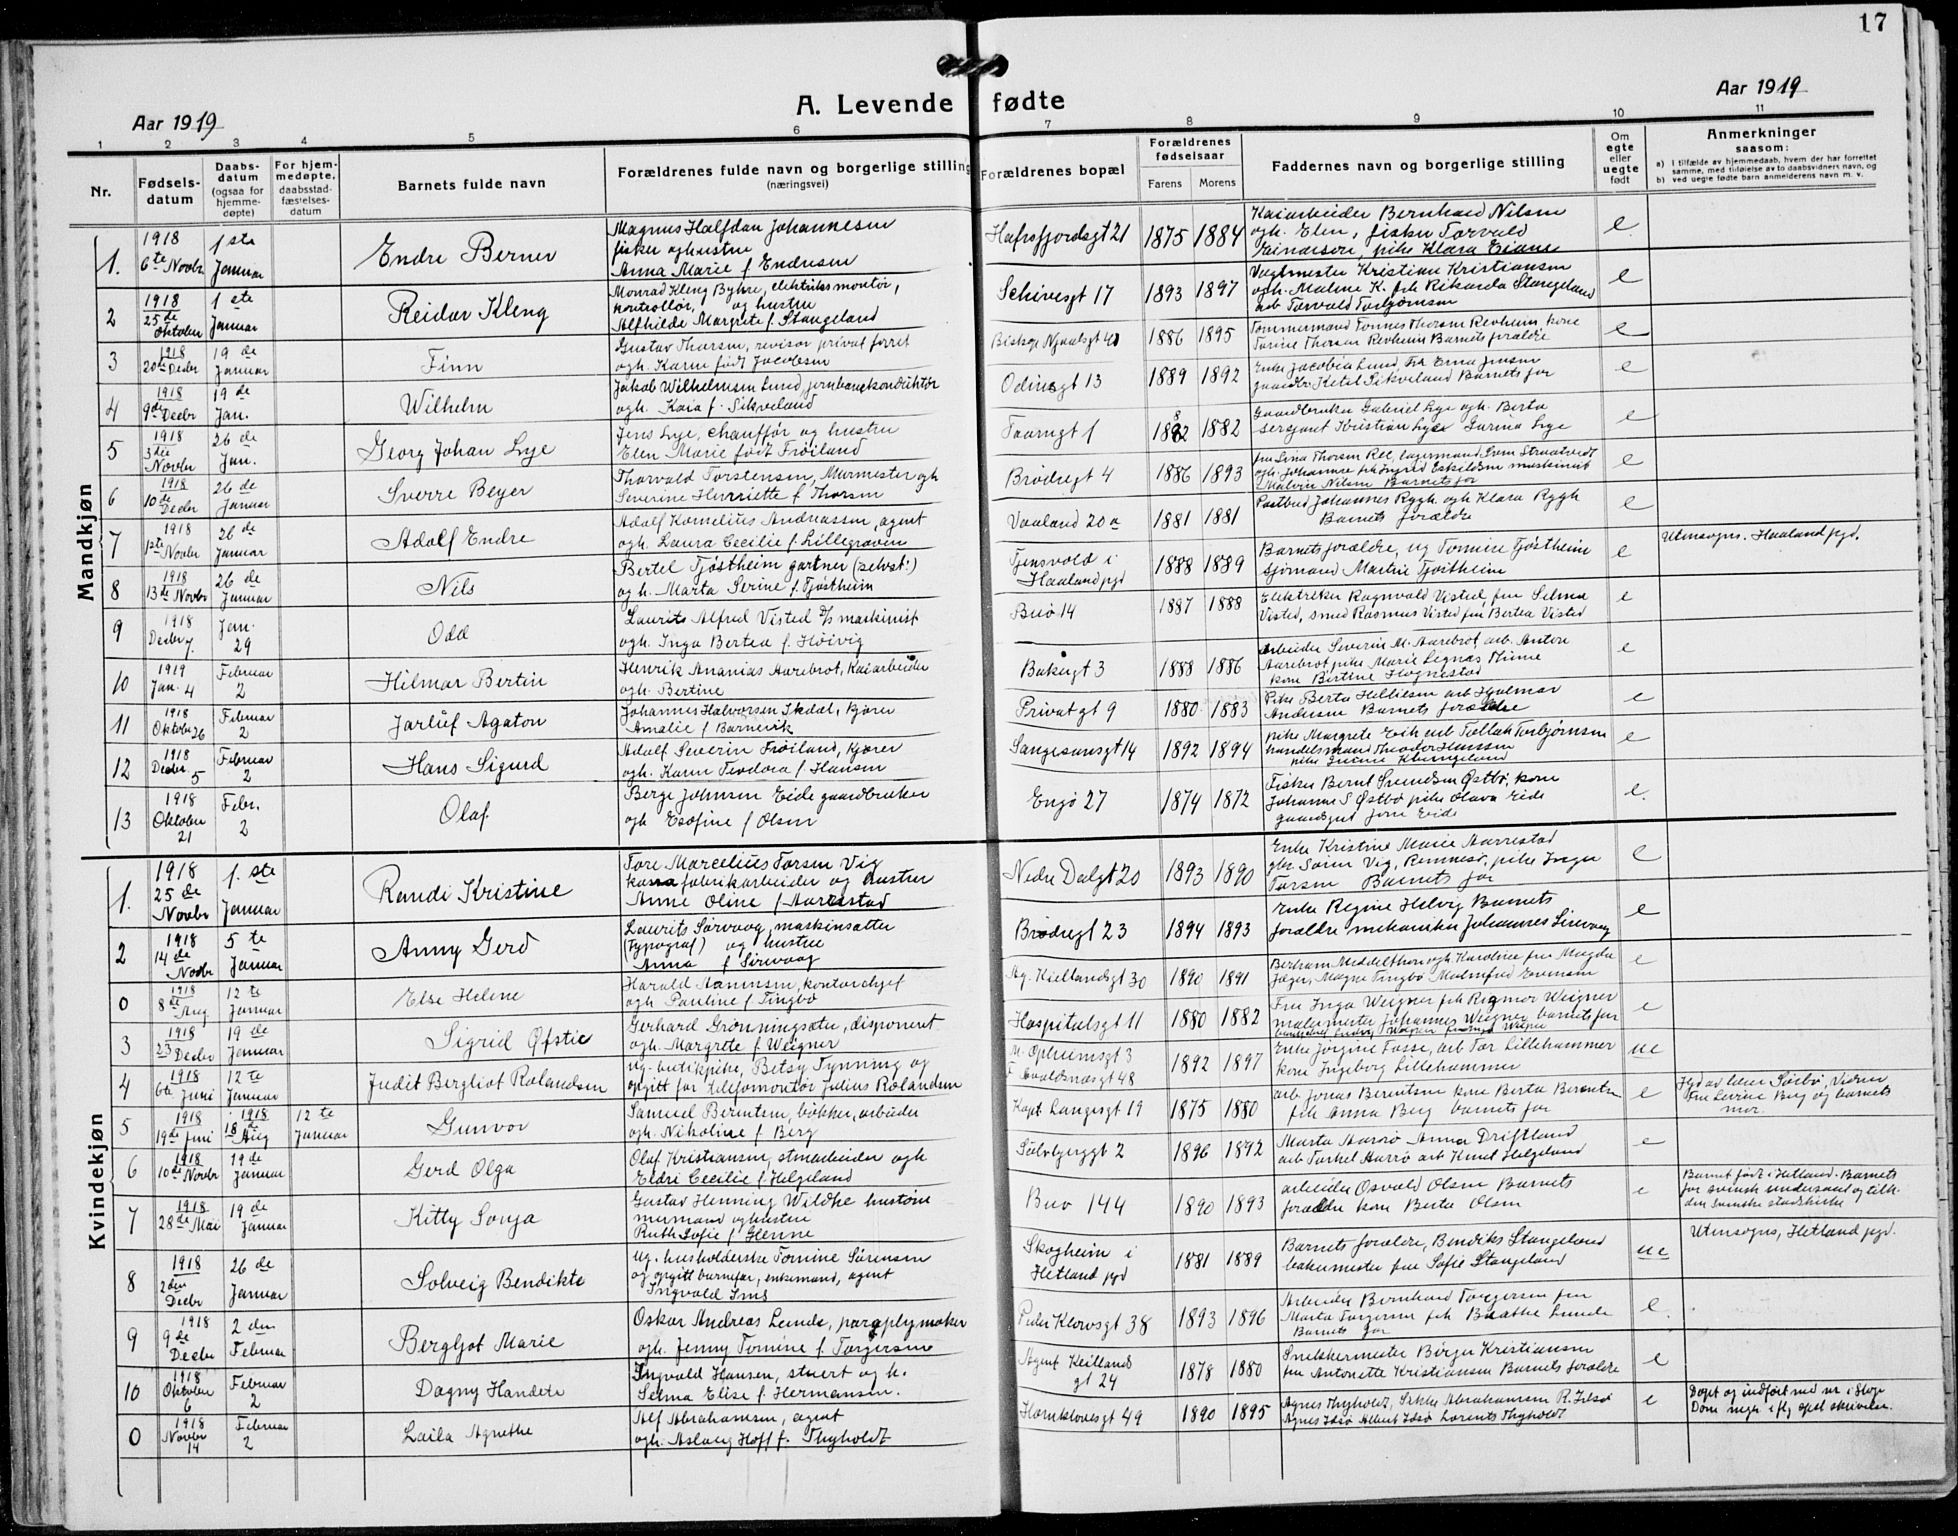 17
Aar 1919
A. Levende fødte
Aar 1919
1 2 3 4 5 6 7 8 8 9 10 11
Nr.
Fødsels-
datum
Daabs-
datum
(ogsaa for
hjemme-
døpte)
For hjem-
medøpte,
daabsstad-
fæstelses-
datum
Barnets fulde navn
Forældrenes fulde navn og borgerlige stilling
(næringsvei)
Forældrenes bopæl
Forældrenes
fødselsaar
Farens Morens
Faddernes navn og borgerlige stilling
Om
egte
eller
uegte
født
Anmerkninger
saasom:
a) I tilfælde av hjemmedaab, hvem der har forrettet
samme, med tilføielse av to daabsvidners navn, og
b) ved uegte fødte barn anmelderens navn m. v.
Mandkjøn
1. 1918 6te Novbr 1ste Januar Endre Berner
Magnus Halfdan Johannesen
fisker og hustru
Anna Marie f Endresen
Hafrsfjordsgt 21 1875 1884
Kaiarbeider Bernhard Nilsen
ogh. Elen, fisker Torvald
Einarsen, pike Klara Eiane
e.
2 1918 25de Oktober 1ste Januar Reidar Kleng
Monrad Kleng Byhre, elektriksmontør,
kontrollør, og hustru
Alfhilde Margrete f. Stangeland
Schivesgt 17 1893 1897
Vegtmester Kristian Kristiansen
ogh. Malene K. frk Rikarda Stangeland
arb Torvald Torbjørnsen
e
3 1918 20de Decbr 19de Januar Finn
Gustav Thorsen, revisor privat forret
ogh. Karen født Jacobsen
Biskop Njaalsgt 40 1886 1895
Tømmermand Tønnes Thorsen Revheim, kone
Torine Thorsen Revheim Barnets forældre
e
4 1918 9de Decbr 19de Jan. Wilhelm
Jakob Wilhelmsen Lund, jernbanekonduktør
ogh. Kaia f. Sikveland
Odinsgt 13 1889 1892
Enke Jacobia Lund, Frk Erna Jensen
gaardbr. Ketel Sikveland Barnets far
e
5 1918 3die Novbr 26de Jan. Georg Johan Lye
Jens Lye, chauffør og hustru
Elen Marie født Frøiland
Taarngt 1 1882 1882
Gaardbruker Gabriel Lye ogh. Berta
sersjant Kristian Lye Gurina Lye
e
6 1918 10de Decbr 26de Januar Sverre Beyer
Thorvald Torstensen, Murmester ogh
Severine Henriette f Thorsen
Brødregt 4 1886 1893
fru Lina Thorsen
ogh. Johanne frk Ingrid Eskildsen maskinist
Malvin Nilsen Barnets far
e
7 1918 1ste Novbr 26de Januar Adolf Endre
Adolf Kornelius Andreassen, agent
ogh. Laura Cecilie f. Lillegraven
Vaaland 20a 1881 1881
Postbud Johannes Rygh. ogh Klara Rygh
Barnets forældre
e
8 1918 13de Novbr 26de Januar Nils
Bertel Tjøstheim gartner (selvst:)
og h. Marta Serine f. Tjøstheim
Tjensvold i
Haaland pgd 1888 1889
Barnets forældre, ug Tomine Tjøstheim
sjømand Martin Tjøstheim
e
Utensogns. Haaland pgd.
9 1918 Decbr 7. Jan. 29 Odd
Laurits Alfred Visted D/S maskinist
ogh. Inga Bertea f. Høivig
Buø 14 1887 1888
Elektriker Ragnvald Visted fru Selma
Visted, smed Rasmus Visted fru Bertea Visted
e
10 1919 Jan. 4 Februar 2 Hilmar Bertin
Henrik Ananias Aarebrot, Kaiarbeider
ogh. Bertine
Bakegt 3 1888 1886
Arbeider Severin M. Aarebrot, arb. Anton
Aarebrot, pike Marie Lignas Thime
kone Bertine Hognestad
e
11 1918 Oktober 26 Februar 2 Jarluf Agaton
Johannes Halvorsen Ikdal, Kjører
Amalie f Barnevik
Privat gt 9 1880 1883
Pike Berta Helliesen arb Hjalmar
Andersen Barnets forældre
e
12 1918 Decbr 5 Februar 2 Hans Sigurd
Adolf Severin Frøiland, Kjører
ogh. Karen Teodora f Hansen
Sangesandsgt 14 1892 1894
pike Margrete Eik arb Tollak Torbjørnsen
handelsmand Theodor Hansen
e
13 1918 Oktober 21 Febr. 2 Olaf
Berge Johnsen Eide gaardbruker
ogh Esefine f Olsen
Engø 27 1874 1872
Fisker Bernt Svendsen Østbø, kone
Johanne S Østbø pike Olava Eide
gaardsgut Jone Eide
e.
Kvindekjøn
1. 1918 25de Novbr 1.ste Januar Randi Kristine
Tore Marcelius Torsen Vig
fabrikarbeider og hustru
Anne Oline f Aarrestad
Nedre Dalgt 20 1893 1890
Enke Kristine Marie Aarrestad
gbr. Soren Vig, Rennesø, pike Inger
Torsen Barnets far
e
2 1918 14de Novbr 5te Januar Anny Gerd
Laurits Sørvaag, maskinsætter
(Typograf) og hustru
Anna f Sirevaag
Brødregt 23 1894 1893
Enke Regine Helvig Barnets
forældre mekaniker Johannes Sirevaag
e
0 1918 8de Aug. 12te Januar Else Helene
Harald Aanensen, kontorchef
ogh. Pauline f Tingbø
Ag. Kiellandsgt 30 1890 1891
Bertram Middelthon ogh Karoline fru Magda
Jæger, Magne Tingbø Malmfrid Evensen
e
3 1918 23 Decbr 19de Januar Sigrid Øfstie
Gerhard Grønningsæter, disponent
ogh. Margrete f Weigner
Hospitalsgt 11 1880 1882
Fru Inga Weigner frk Rigmor Weigner
malermester Johannes Weigner barnets far
e
4 1918 6te Juni 12te Januar Judit Bergliot Rolandsen
ug. butikpike, Betsy Tynning og
opgitt far telefonmontør Julius Rolandsen
M. Opheimsgt 3
F. Avaldsnæsgt 48 1892 1897
Enke Jørgine Fosse, arb Tor Lillehammer
kone Ingeborg Lillehammer
ue
5 1918 19de Juni 1918 18 Aug 12te Januar Gunvor
Samuel Berntsen, bøkker, arbeider
ogh. Nikoline f Berg
Kapt Langesgt 19 1875 1880
arb. Jonas Berentsen kone Berta Berentsen
frk Anna Berg barnets far
e
Fru Levine Berg og barnets
mor.
6 1918 10de Novbr 19de Januar Gerd Olga
Olaf Kristiansen, stenarbeider ogh
Eldri Cecilie f. Helgeland
Sølvberggt 2 1896 1892
Marta Aarrø Anna Driftland
arb Torkel Aarrø arb Knut Helgeland
e
7 1918 28de Mai 19de Januar Kitty Sonja
Gustav Henning Wildhe hustøm
mermand og hustru
Ruth Sofie f Glenne
Buø 144 1890 1893
arbeider Osvald Olsen Barnets
forældre kone Berta Olsen
e
Barnet født i Hetland. Barnets
far svensk undersaat og tilh.
den svenske statskirke
8 1918 2den Decbr 26de Januar Solveig Bendikte
Ug. husholderske Tomine Sørensen
og opgitt barnefar, enkemand, agent
Ingvald Ims
Skogheim i
Hetland pgd 1881 1889
Barnets forældre, Bendiks Stangeland
bakermester fru Sofie Stangeland
ue
Utensogns, Hetland pgd.
9 1918 9de Decbr 2den Februar Bergljot Marie
Oskar Andreas Lende, paraplymaker
ogh. Jenny Tomine f Torgersen
Peder Klowsgt 38 1893 1896
Arbeider Bernhard Torgersen fru
Marta Torgersen frk Beathe Lunde
Barnets far
e.
10 1918 Oktober 6 Februar 2 Dagny Handete
Ingvald Hansen, stuert og h.
Selma Elise f. Hermansen.
Agent Keillands
gt 24 1878 1880
Snekkermester Birger Kristiansen
fru Antonette Kristiansen Barnets forældre
e
0 1918 Novbr 14 Februar 2 Laila Agnethe
Alf Abrahamsen, agent
ogh. Aslaug Hoff f. Thyholdt
Harnkloversgt 49 1890 1895
Agnes Thyholdt, Sikke Abrahamsen R. Idsø
Agnes Idsø Albert Idsø Lorents Thyholdt
e
Døpt og indført med nr i